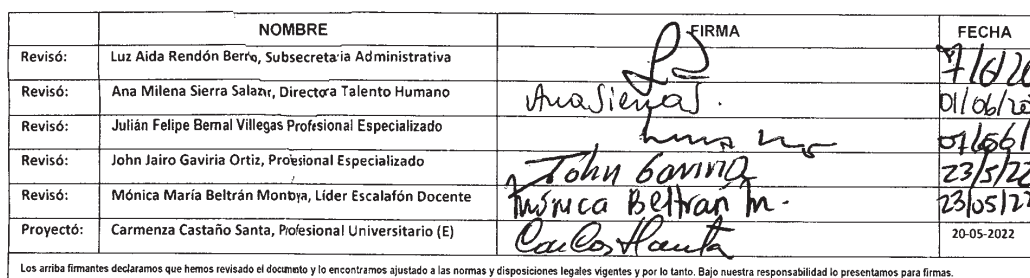 NOMBRE FIRMA FECHA
Revisó: Luz Aida Rendón Berrío, Subsecretaria Administrativa 7/6/20
Revisó: Ana Milena Sierra Salazar, Directora Talento Humano Ana Sierra S. 01/06/20
Revisó: Julián Felipe Bernal Villegas Profesional Especializado
Revisó: John Jairo Gaviria Ortiz, Profesional Especializado John Gaviria 23/5/22
Revisó: Mónica María Beltrán Montoya, Líder Escalafón Docente Mónica Beltran M. 23/05/22
Proyectó: Carmenza Castaño Santa, Profesional Universitario (E) 20-05-2022
Los arriba firmantes declaramos que hemos revisado el documento y lo encontramos ajustado a las normas y disposiciones legales vigentes y por lo tanto. Bajo nuestra responsabilidad lo presentamos para firmas.